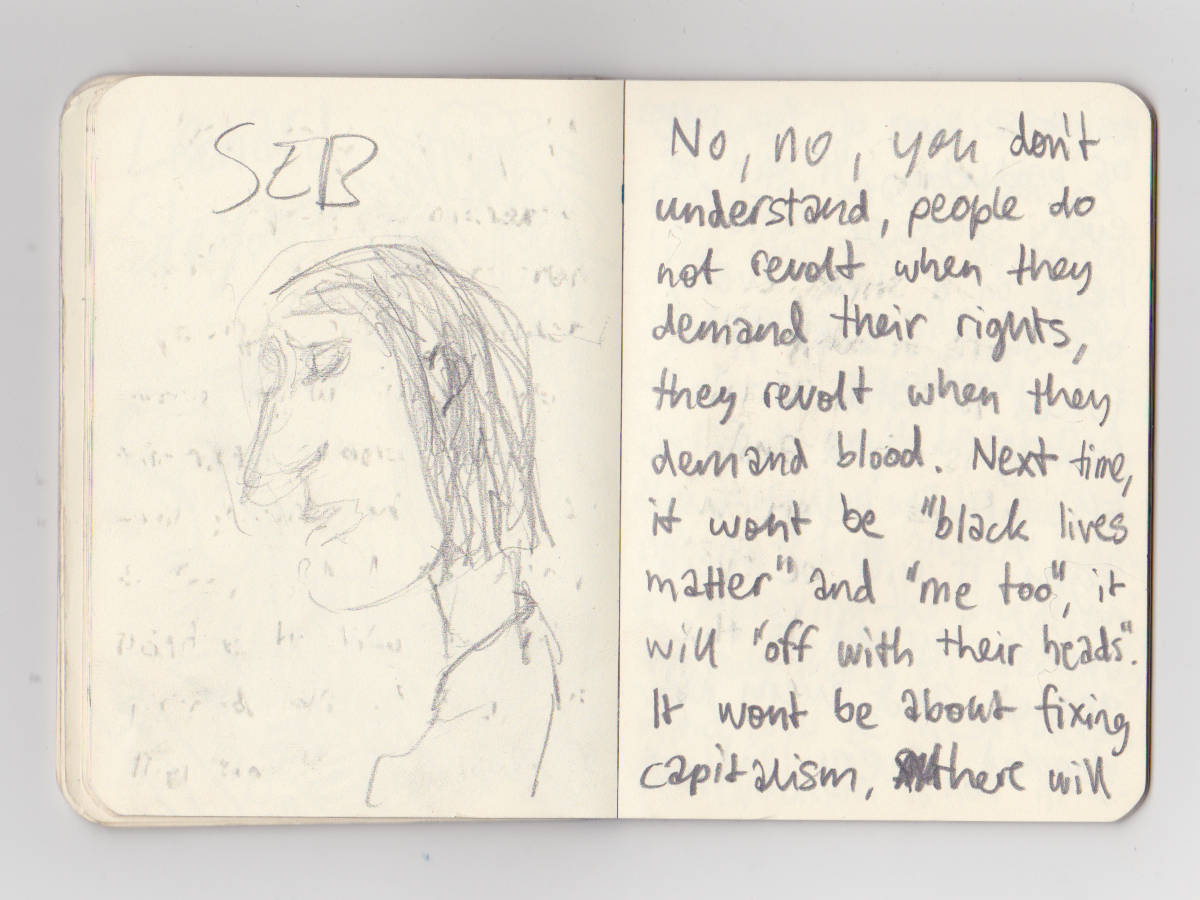 SEB
No, no, you don't
understand, people do
not revolt when they
demand their rights,
they revolt when they
demand blood. Next time,
it wont be "black lives
matter" and "me too", it
will "off with their heads".
It wont be about fixing
capitalism, there will